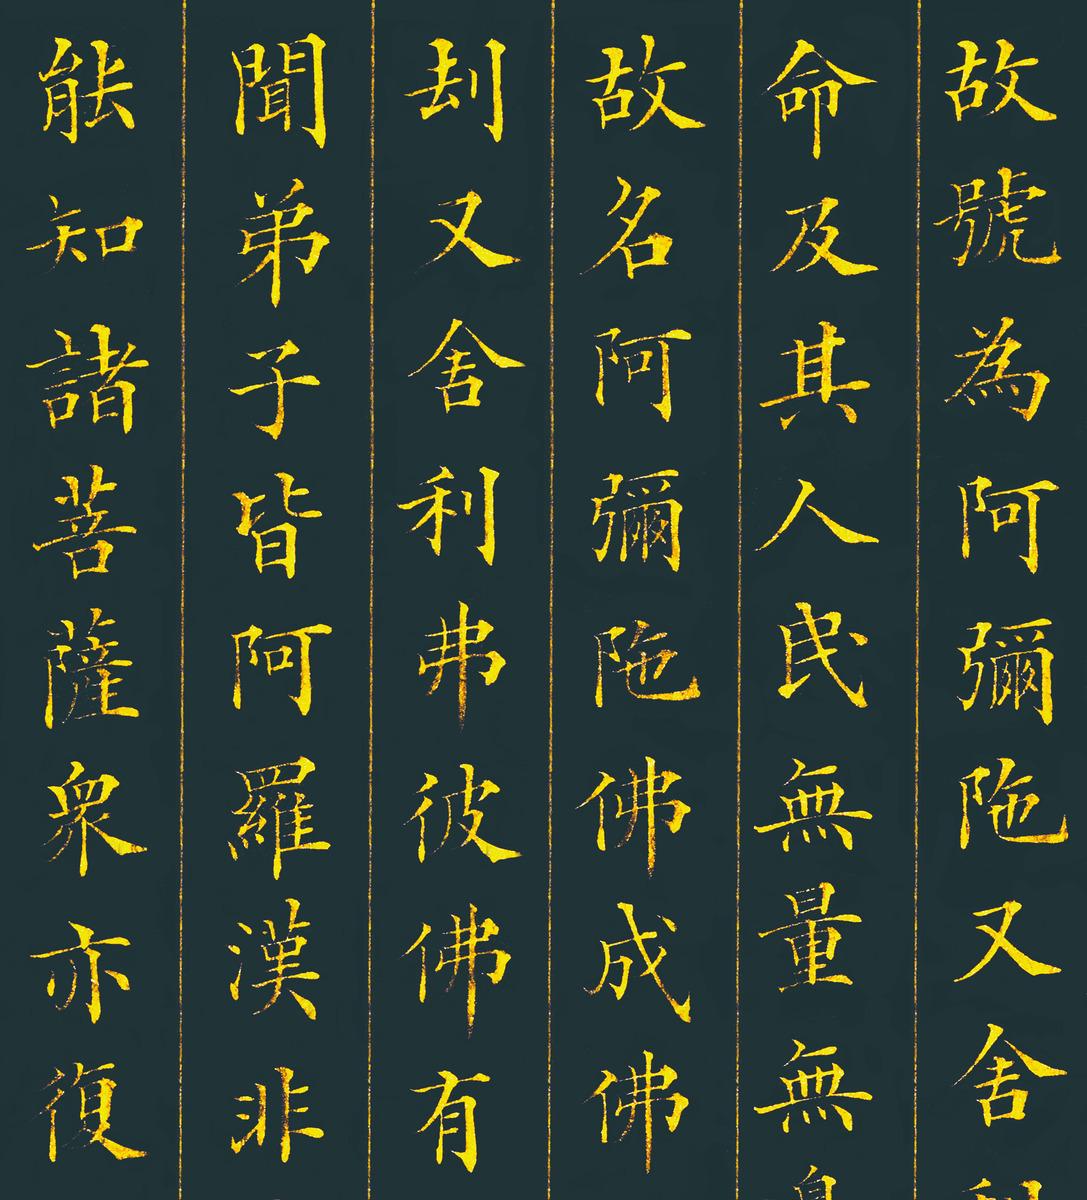 故號為阿彌陁又舍利
命及其人民無量無
故名阿彌陁佛成佛
刦又舍利弗彼佛有
聞弟子皆阿羅漢非
能知諸菩薩衆亦復